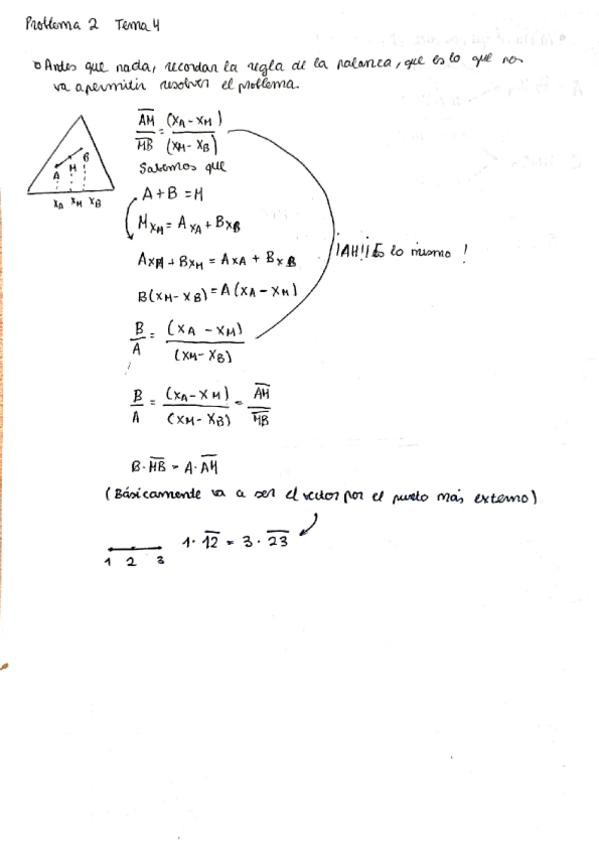 Problema 2 Tema 4
Antes que nada, recordar la regla de la palanca, que es lo que nos
va a permitir resolver el problema.
AM/MB = (xA - xM)/(xM - xB)
Sabemos que
A + B = M
M xM = A xA + B xB
A xM + B xM = A xA + B xB
B(xM - xB) = A(xA - xM)
¡AH! ¡Es lo mismo!
B/A = (xA - xM)/(xM - xB)
B/A = (xA - xM)/(xM - xB) = AM/MB
B · MB = A · AM
(Básicamente va a ser el vector por el punto más externo)
1 · 12 = 3 · 23
1 2 3
A M B
xA xM xB